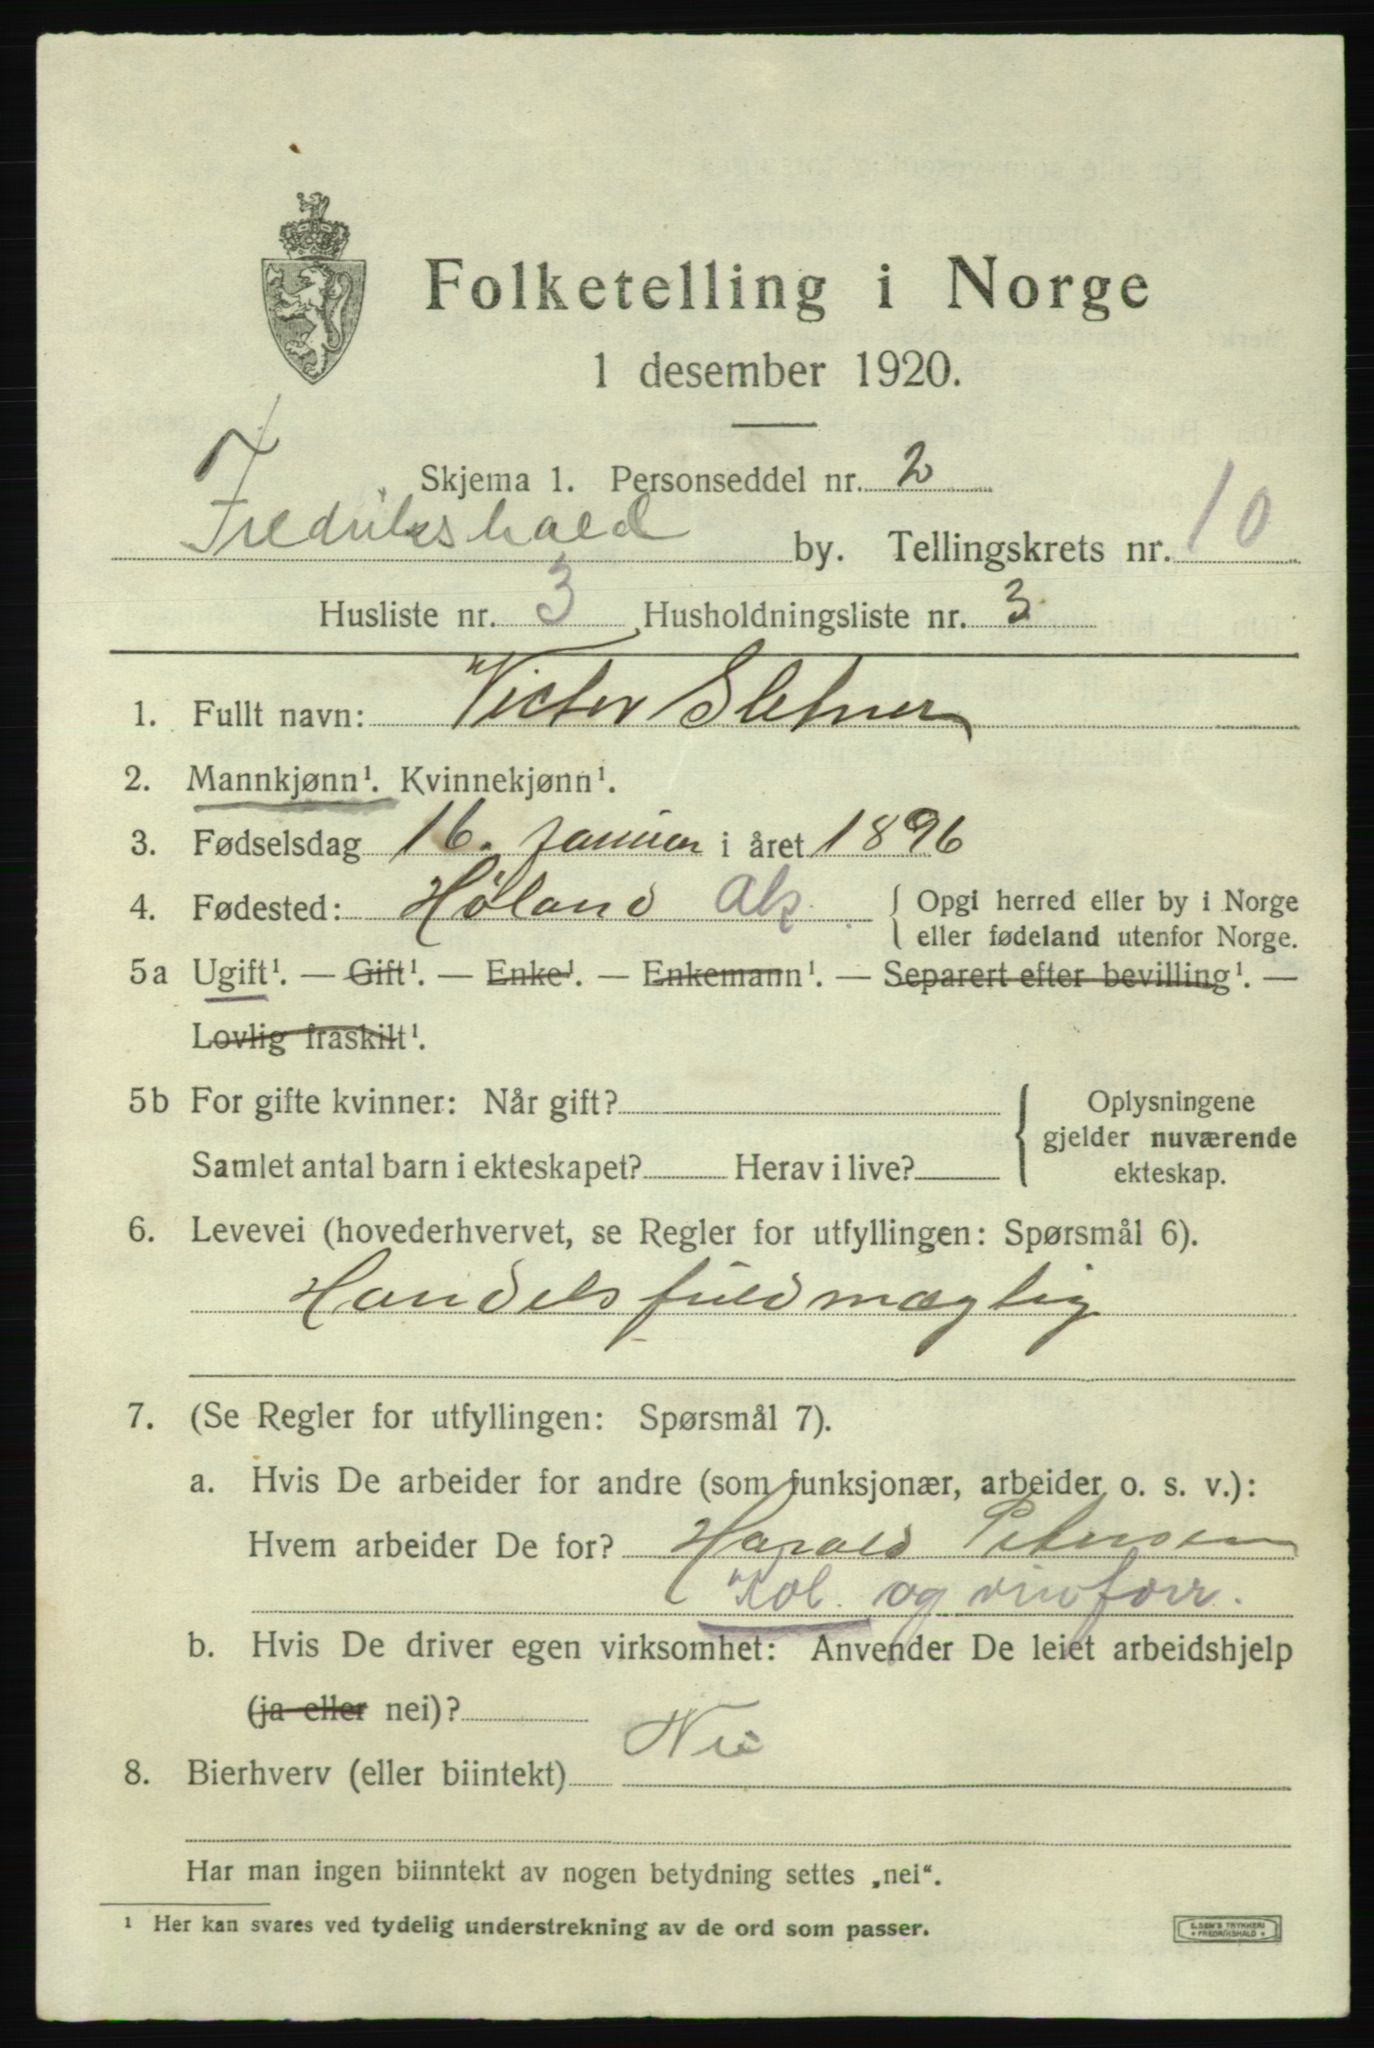 Folketelling i Norge
1 desember 1920.
Skjema 1. Personseddel nr. 2
Fredrikshald by. Tellingskrets nr. 10
Husliste nr. 3 Husholdningsliste nr. 3
1. Fullt navn: Victor Sletner
2. Mannkjønn¹. Kvinnekjønn¹.
3. Fødselsdag 16. Januar i året 1896
4. Fødested: Høland Ak. { Opgi herred eller by i Norge
eller fødeland utenfor Norge.
5a Ugift¹. — Gift¹. — Enke¹. — Enkemann¹. — Separert efter bevilling¹. —
Lovlig fraskilt¹.
5b For gifte kvinner: Når gift?
Samlet antal barn i ekteskapet? Herav i live?
{ Oplysningene
gjelder nuværende
ekteskap.
6. Levevei (hovederhvervet, se Regler for utfyllingen: Spørsmål 6).
Handelsfuldmægtig
7. (Se Regler for utfyllingen: Spørsmål 7).
a. Hvis De arbeider for andre (som funksjonær, arbeider o. s. v.):
Hvem arbeider De for? Harald Petersen
Kol. og vinforr.
b. Hvis De driver egen virksomhet: Anvender De leiet arbeidshjelp
(ja eller nei)?
8. Bierhverv (eller biintekt) Nei
Har man ingen biinntekt av nogen betydning settes „nei“.
¹ Her kan svares ved tydelig understrekning av de ord som passer.
TRYKKERI
FREDRIKSHALD